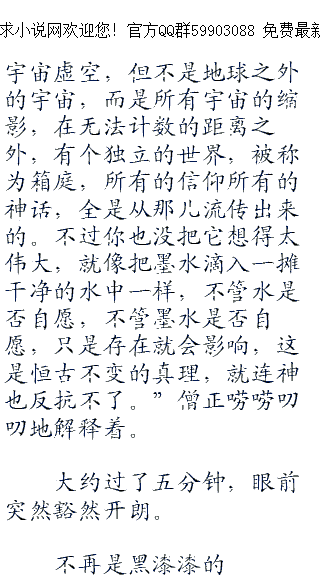 求小说网欢迎您！官方QQ群59903088 免费最新
宇宙虚空，但不是地球之外
的宇宙，而是所有宇宙的缩
影，在无法计数的距离之
外，有个独立的世界，被称
为箱庭，所有的信仰所有的
神话，全是从那儿流传出来
的。不过你也没把它想得太
伟大，就像把墨水滴入一摊
干净的水中一样，不管水是
否自愿，不管墨水是否自
愿，只是存在就会影响，这
是恒古不变的真理，就连神
也反抗不了。”僧正唠唠叨
叨地解释着。
大约过了五分钟，眼前
突然豁然开朗。
不再是黑漆漆的